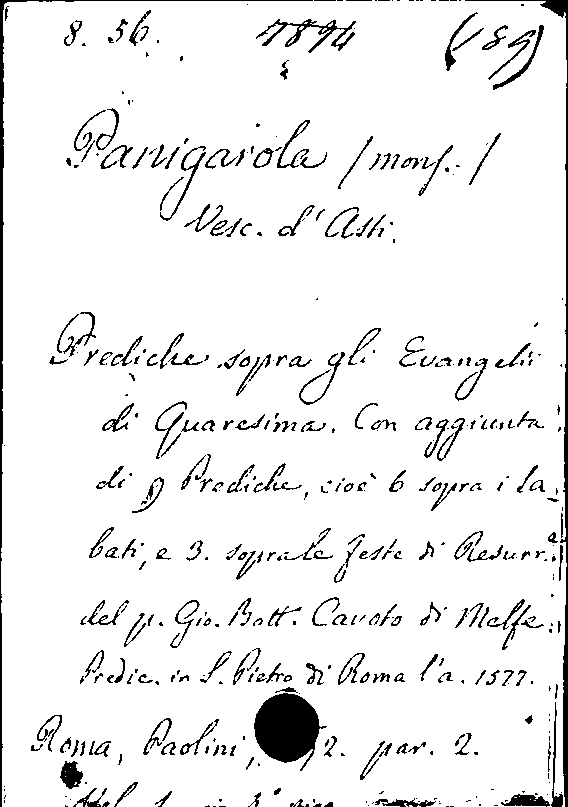 8. 56. 7894 (189)
Panigarola /mons./
Vesc. d'Asti.
Prediche sopra gli Evangelii
di Quaresima. Con aggiunta
di 9 Prediche, cioè 6 sopra i Sa_
bati, e 3. sopra le feste di Resurr.a
del p. Gio. Batt. Cavoto di Melfe.
Predic. in S. Pietro di Roma l'a. 1577.
Roma, Paolini, 2. par. 2.